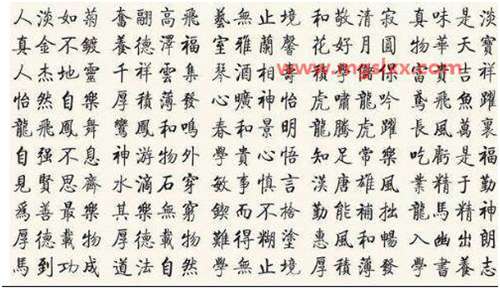 人淡如菊 奮翮高飛 藝無止境 和敬清寂 真味是淡
真金不鍍 養德澤福 室雅蘭馨 花好月圓 物華天寶
人杰地靈 千祥雲集 琴酒相 富貴吉祥
怡然自樂 厚積薄發 心曠神怡 虎嘯龍吟 鳶飛魚躍
龍飛鳳舞 鸞鳳和鳴 春和景明 龍騰虎躍 長風萬裏
自强不息 神游物外 學貴心悟 知足常樂 吃虧是福
見賢思齊 水滴石穿 敏事慎言 漢唐雄風 業精于勤
爲善最樂 其樂無窮 鍥而不捨 勤能補拙 龍馬精神
厚德載物 厚德載物 難得糊塗 惠風和暢 入幽出朗
馬到功成 道法自然 學無止境 厚積薄發 學書養志
www.mgslxx.com